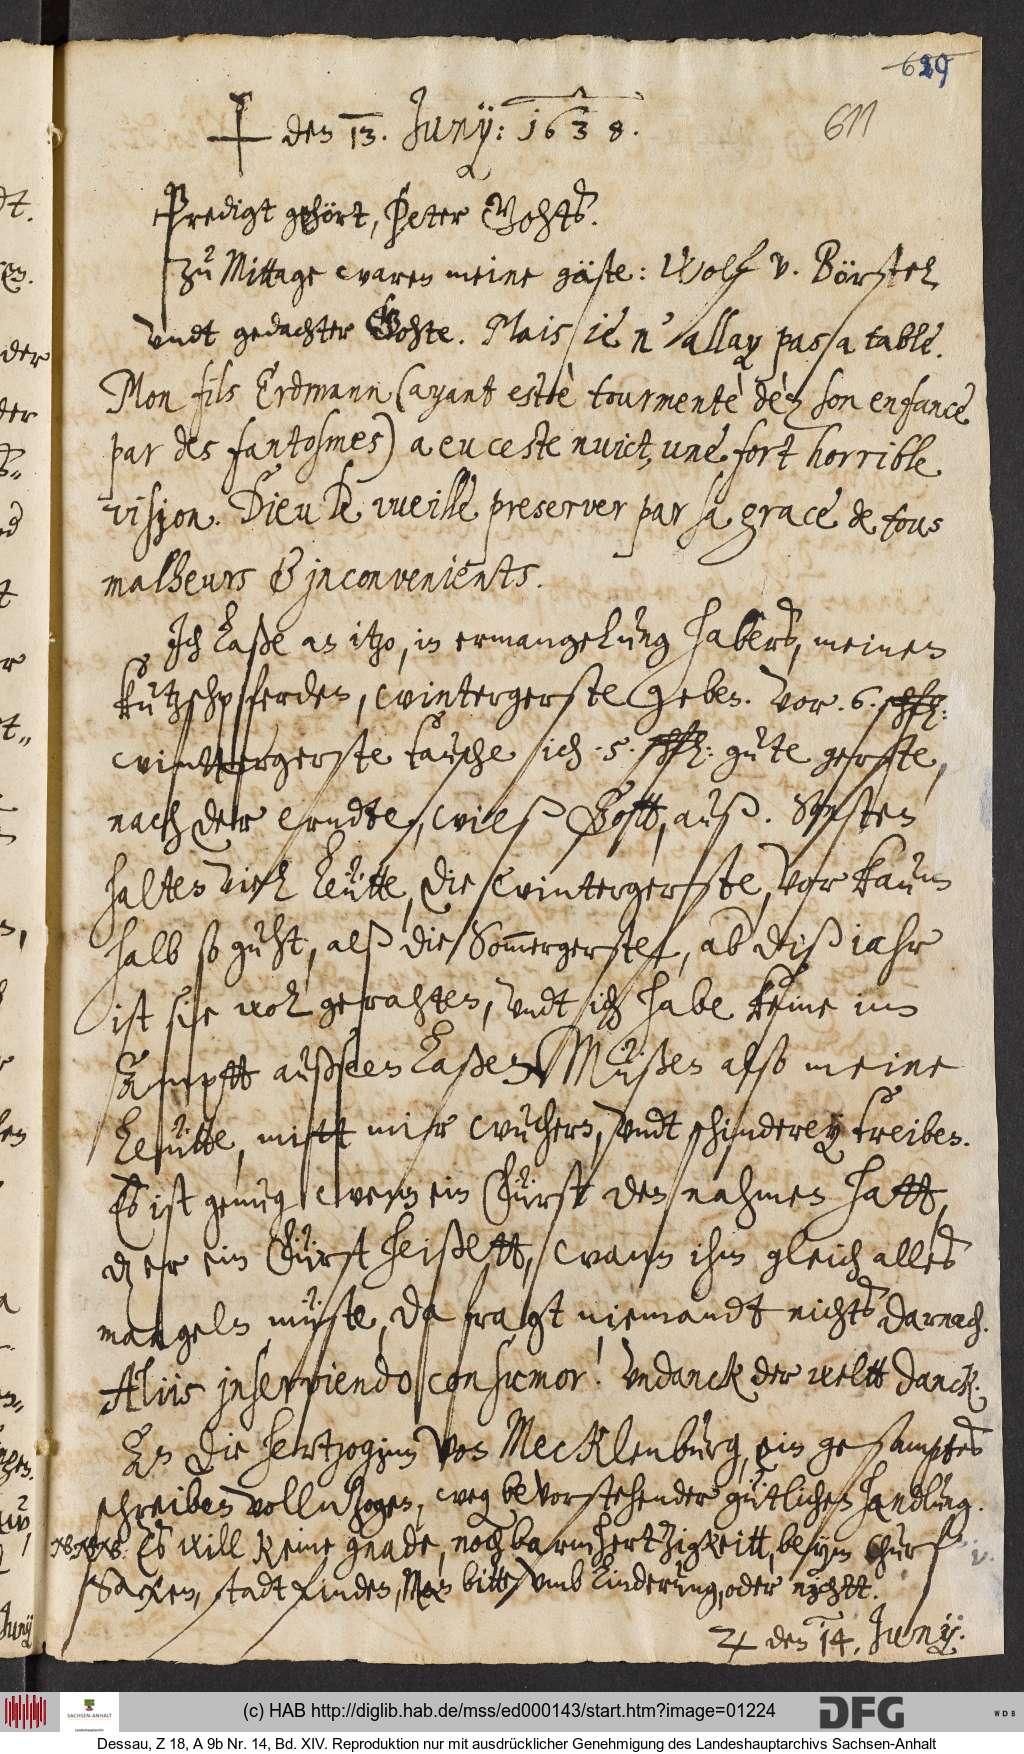 629
611
den 13. Junij: 1638.
Predigt gehört, Peter Gohts.
Zu Mittage waren meine gäste: Wolf v. Börstel
vndt gedachter Gohte. Mais ie n'allay pas a table.
Mon fils Erdmann (ayant estè tourmentè déz son enfance
par des fantosmes) a eu ceste nuict, vne fort horrible
visyon. Dieu le vueille preserver par sa grace de tous
malheurs & jnconvenients.
Jch laße an itzo, in ermangelung habers, meinen
kutzschpferden, wintergerste geben. Vor .6. schfl:
wintergerste tausche ich .5. schfl: gute gerste,
nach der erndte, wils Gott, auß. Sonsten
halten viel leütte, die wintergerste, vor kaum
halb so guht, alß die Sommergerste, ab diß iahr
ist sie wol gerahten, vndt ich habe keine im
außseen laßen. Müßen also meine
Leütte, mitt mir wuchern, vndt schinderey treiben.
Es ist genug wenn ein Fürst den nahmen hatt,
das er ein Fürst heißett, wann ihm gleich alles
mangeln müste, da fragt niemandt nichts darnach.
Aliis jnserviendo consumor! Vndanck der weltt danck.
An die hertzoginn von Mecklenburg, ein gesamptes
schreiben vollnzogen, weg bevorstehender gütlichen handlung.
Es will keine gnade, noch barmhertzigkeitt, beym Churf. v.
Saxen, stadt finden, Man bitte vmb linderung, oder nichtt.
♃ den 14. Junij.
(c) HAB http://diglib.hab.de/mss/ed000143/start.htm?image=01224
SACHSEN-ANHALT
DFG
WDB
Dessau, Z 18, A 9b Nr. 14, Bd. XIV. Reproduktion nur mit ausdrücklicher Genehmigung des Landeshauptarchivs Sachsen-Anhalt